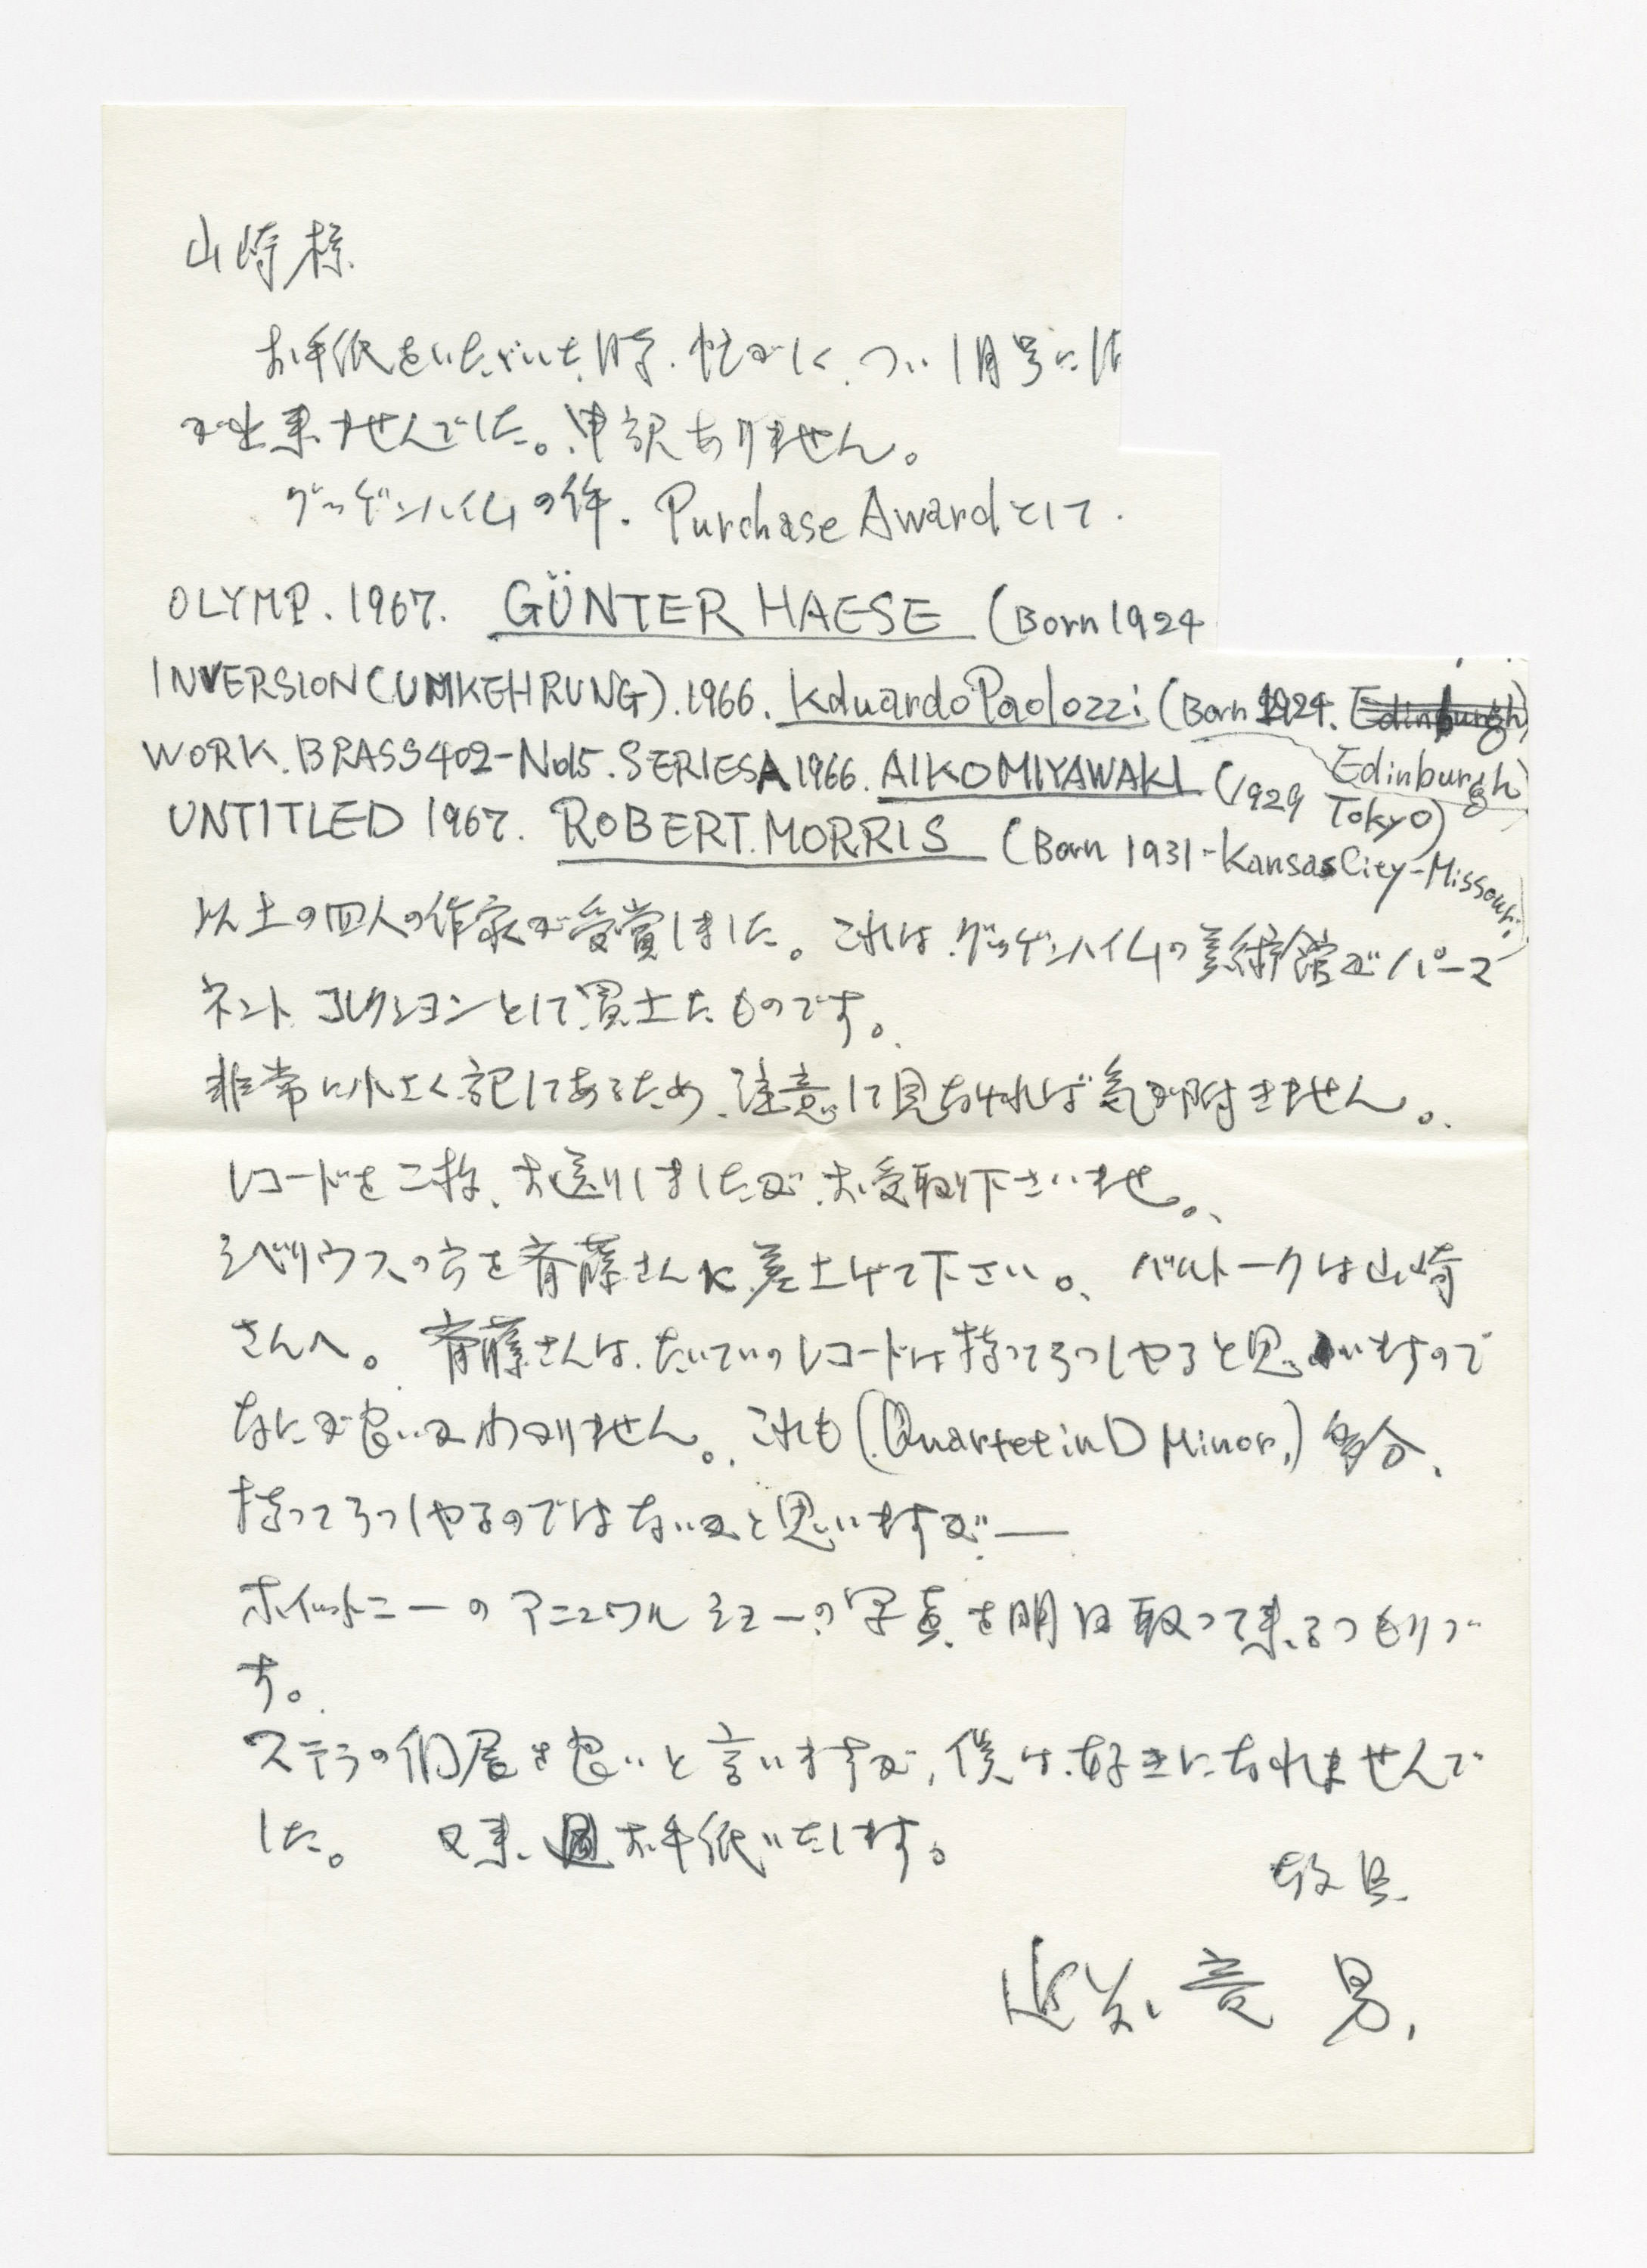 山崎様
お手紙をいただいた時、忙がしく、つい1月号には
が出来ませんでした。申訳ありません。
グッゲンハイムの件. Purchase Awardとして.
OLYMP. 1967. GÜNTER HAESE (Born 1924
INVERSION (UMKEHRUNG). 1966. Kduardo Paolozzi (Born 1924. Edinburgh)
Edinburgh)
WORK. BRASS 402-No15. SERIES A 1966. AIKO MIYAWAKI (1929 Tokyo)
UNTITLED 1967. ROBERT. MORRIS (Born 1931-Kansas City-Missouri)
以上の四人の作家が受賞しました。これは、グッゲンハイムの美術館がパーマ
ネントコレクションとして買上たものです。
非常に小さく記してあるため、注意して見なければ気が附きません。
レコードを二枚、お送りしましたが、お受取り下さいませ。
シベリウスの方を斉藤さんに差上げて下さい。バルトークは山崎
さんへ。斉藤さんは、たいていのレコードは持ってらっしゃると思いますので
なにが良いかわかりません。これも (Quartet in D Minor.) 多分、
持ってらっしゃるのではないかと思いますが——
ホイットニーのアニュワルショーの写真を明日取って来るつもりで
す。
ステラの個展を良いと言いますが、僕は、好きになれませんで
した。 又来週お手紙いたします。
敬具
近藤竜男